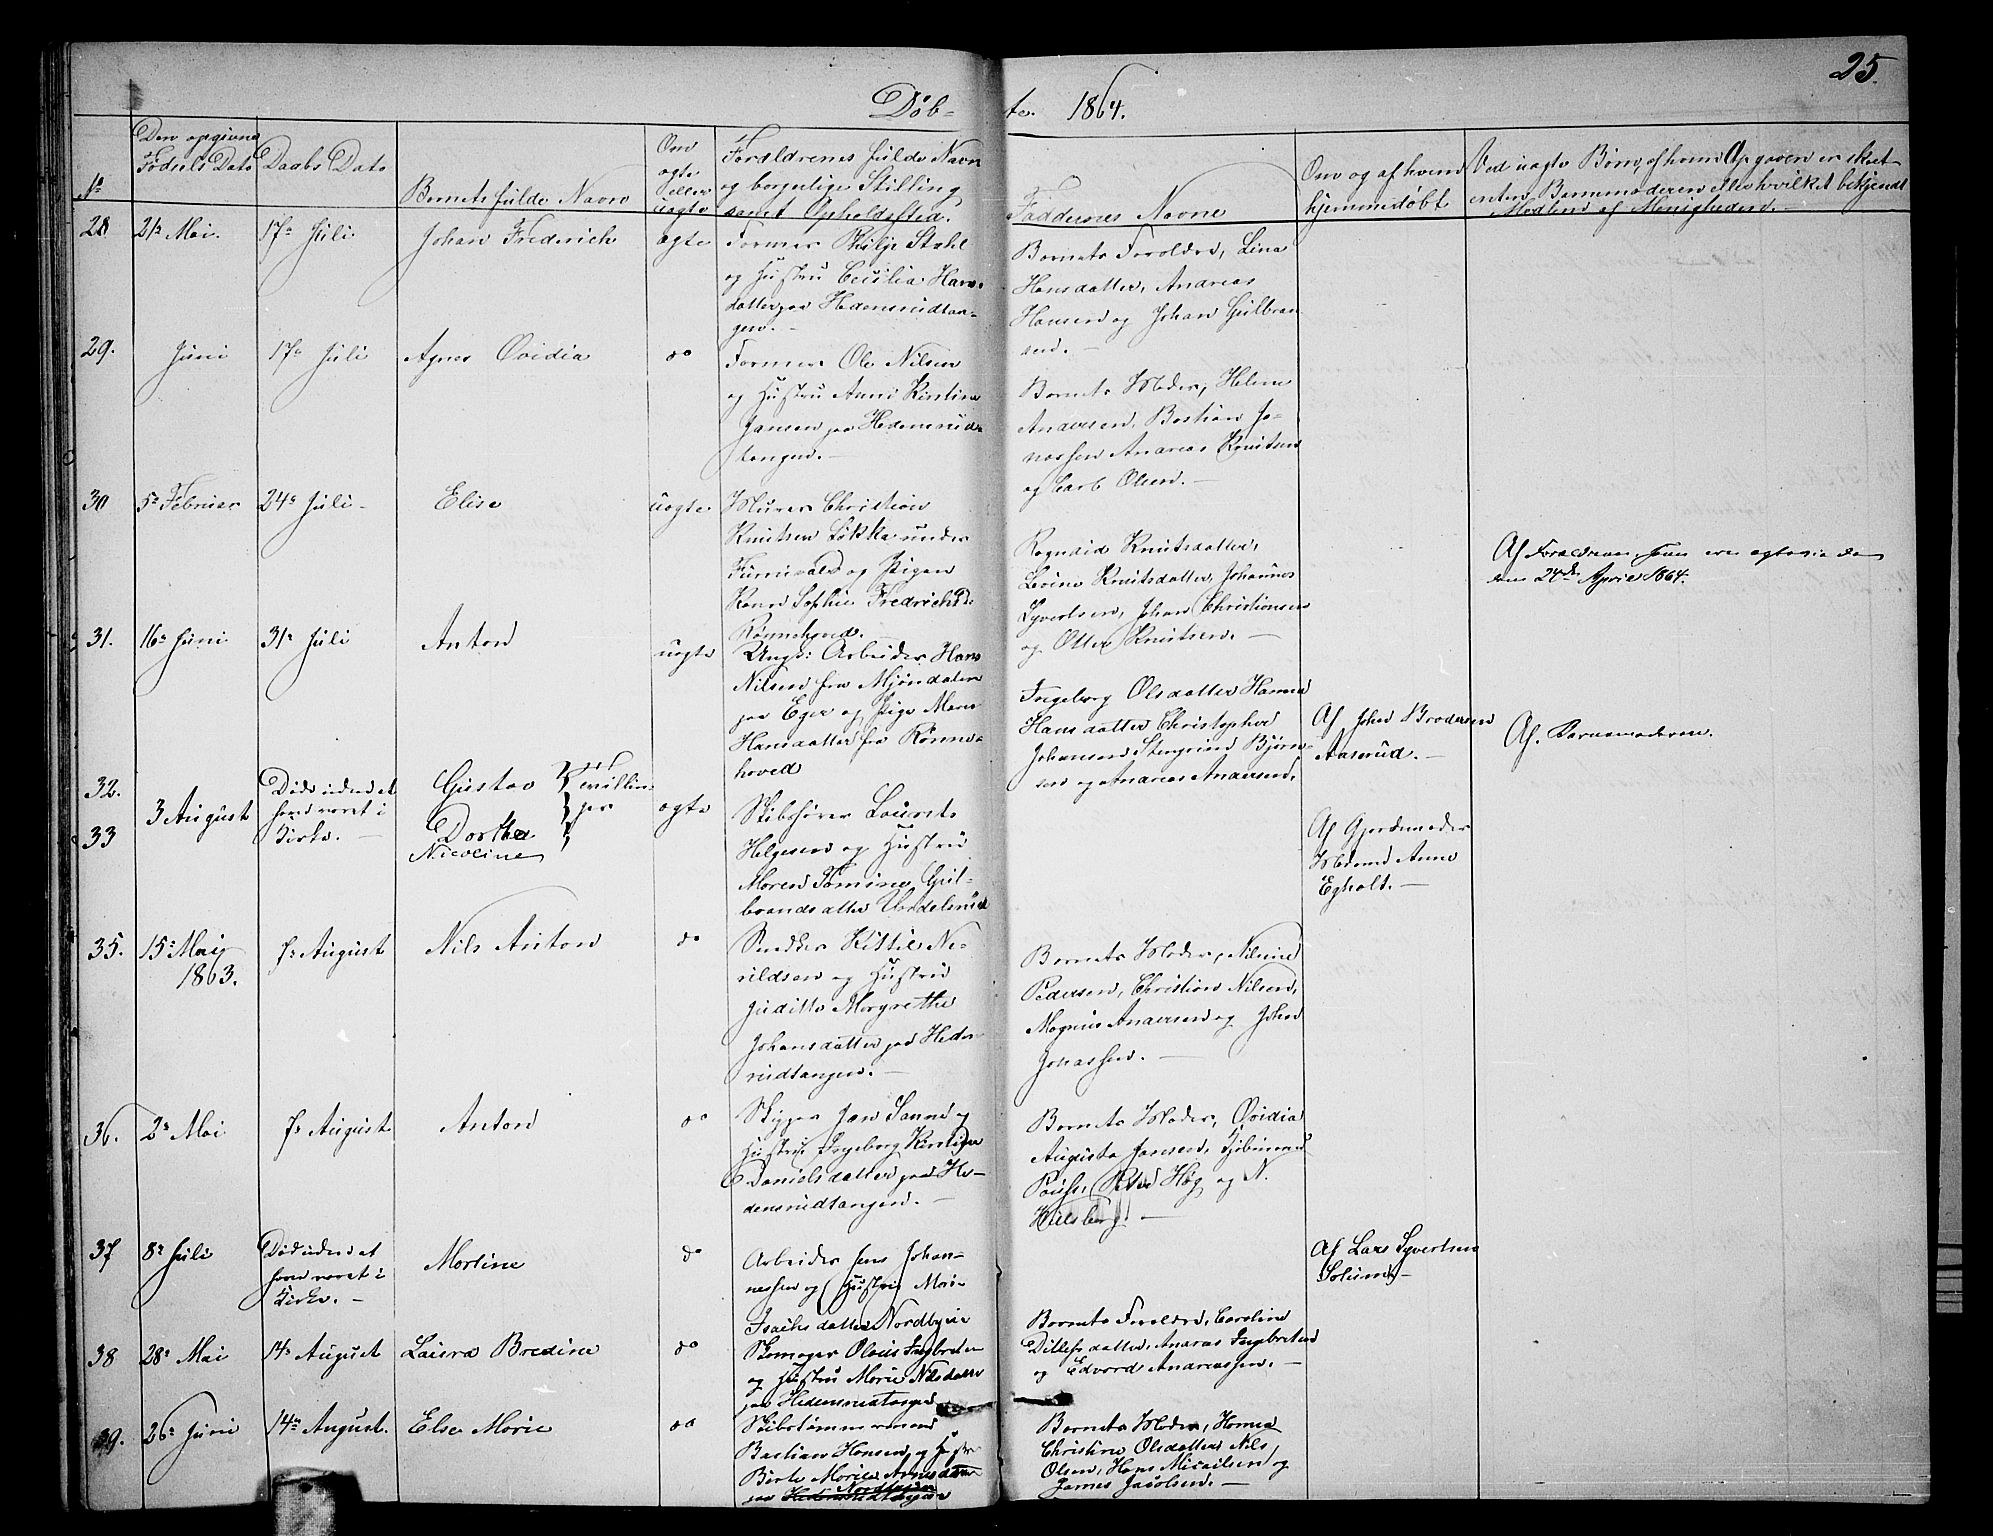 25.
Døb-
te. 1864.
No
Den opgivne
Fødsels Dato
Daabs Dato
Barnets fulde Navn
Om
ægte
eller
uægte
Forældrenes fulde Navn
og borgerlige Stilling
samt Opholdssted.
Faddernes Navne
Om og af hvem
hjemmedøbt
Ved uægte Børn, af hvem Opgaven er skeet
enten Barnemoderen eller hvilket bekjendt
Medlem af Menigheden.
28
21de Mai.
17de Juli
Johan Frederich
ægte
Former Philip Stahl
og Hustru Cecilia Hans-
datter paa Hedensrudtan-
gen. -
Barnets Forældre, Lina
Hansdatter, Andreas
Hansen og Johan Gulbran
sen. -
29.
Juni
17de Juli
Agnes Ovidia
do
Former Ole Nilsen
og Hustru Anne Kirstine
Jansen paa Hedensrud-
tangen. -
Barnets Moder, Helene
Andersen, Bastian Jo-
nassen Andreas Knutsen
og Carl Olsen. -
30
5te Februar
24de Juli -
Elise
uægte
Murer Christian
Knutsen Løkka under
og Pigen
Sophie Fredrichsd:
Rønnehoved. -
Knutsdatter,
Knutsdatter, Johannes
Syvertsen, Johan Christiansen
og Otter Knutsen. -
Af Forældrene, som ere ægteviede
den 24de April 1864.
31.
16de Juni
31te Juli
Anton
uægte
Ungk: Arbeider Hans
Nilsen fra Mjøndalen
paa Eger og Pige Maren
Hansdatter fra Rønne-
hoved
Ingeborg Olsdatter Hanna
Hansdatter Christopher
Johansen Stengrind Bjørn-
sen og Andreas Andersen.
Af John Brodersen
Aaserud. -
Af Barnemoderen.
32.
33
3 August
Døde inden et
havd været i
Kirke. -
Gustav
Dorthea
Nicoline
Tvillin-
ger
ægte
Skibsfører Laurits
Helgesen og Hustru
Maren Tomine Gul-
brandsdatter Verdelsrud
Af Gjordemoder
Madam Anne
Egholt. -
35.
15de Maij
1863.
7de August
Nils Anton
do
Snedker Kittil Ne-
rildsen og Hustru
Juditte Margrethe
Johansdatter paa Heden
rudtangen. -
Barnets Moder, Nilsine
Pedersen, Christian Nilsen,
Magnus Andersen og Johan
Jonassen. -
36.
2de Mai
7de August
Anton
do
Skipper Jan Sanne og
Hustru Ingeborg Kirstine
Danielsdatter paa He-
densrudtangen. -
Barnets Moder, Ovidia
Augusta Jansen,
Peter Høg og N.
Hulsberg. -
37
8de Juli
Død inden et
havd været i
Kirke. -
Martine
do
Arbeider Jens Johan-
nessen og Hustru Mari
Isachsdatter Nordbyeie
Af Lars Syvertsen
Solum. -
38
28de Mai
14de August
Laura Bredine
do
Skomager Olaus Ingbretsen
og Hustru Marie Nilsdatter
paa Hedensrudtangen
Barnets Forældre, Caroline
Ditlefsdatter, Andreas Ingbretsen
og Edvard Andreassen. -
39.
26de Juni
14de August.
Else Marie
do
Skibstømmermand
Bastian Hansen, og Hustru
Birte Marie Arnesdatter
Nordbyeie
paa Hedensrudtangen
Barnets Moder, Hanna
Christine Olsdatter Nils
Olsen, Hans Micaelsen og
James Jacobsen. -